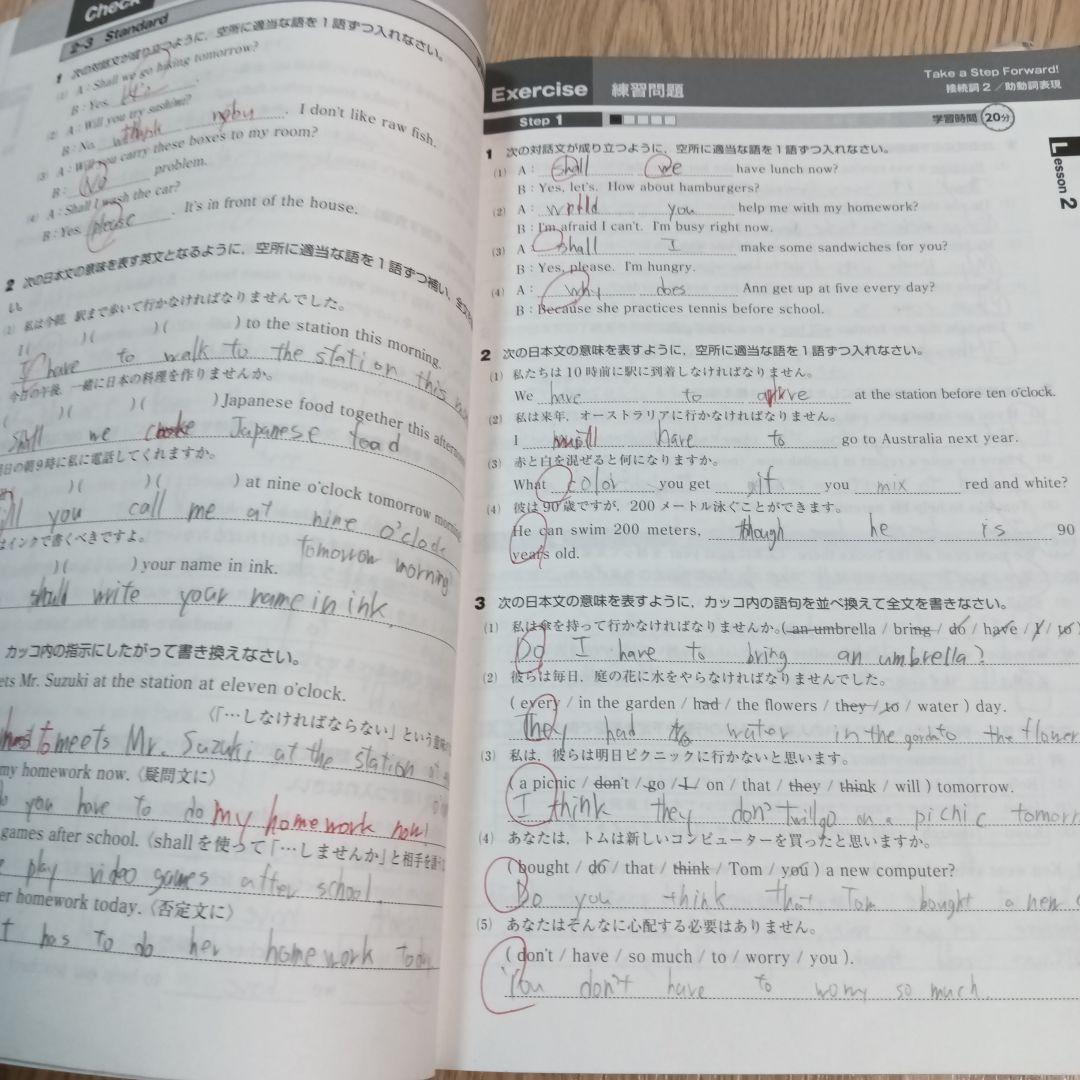 Check
2-3 Standard
1 次の対話文が成り立つように，空所に適当な語を1語ずつ入れなさい。
(1) A : Shall we go hiking tomorrow?
B : Yes, let's .
(2) A : Will you try sashimi?
B : No, think . I don't like raw fish.
(3) A : Will you carry these boxes to my room?
B : No problem.
(4) A : Shall I wash the car?
B : Yes, please . It's in front of the house.
2 次の日本文の意味を表す英文となるように，空所に適当な語を1語ずつ補い，全文
い。
(1) 私は今朝，駅まで歩いて行かなければなりませんでした。
I ( )( )( ) to the station this morning.
I have to walk to the station this
今日の午後，一緒に日本の料理を作りませんか。
( )( )( ) Japanese food together this afternoon
Shall we Japanese food
明日の朝9時に私に電話してくれますか。
)( )( ) at nine o'clock tomorrow morning
you call me at nine o'clock
tomorrow morning
はインクで書くべきですよ。
)( ) your name in ink.
should write your name in ink.
カッコ内の指示にしたがって書き換えなさい。
ets Mr. Suzuki at the station at eleven o'clock.
〈「…しなければならない」という意味の
to meets Mr. Suzuki at the station
my homework now.〈疑問文に〉
you have to do my homework now
games after school.〈shallを使って「…しませんか」と相手を誘う
play video games after school.
er homework today.〈否定文に〉
t has to do her homework today
Exercise 練習問題
Take a Step Forward!
接続詞2／助動詞表現
Step 1
学習時間 20分
Lesson 2
1 次の対話文が成り立つように，空所に適当な語を1語ずつ入れなさい。
(1) A : shall we have lunch now?
B : Yes, let's. How about hamburgers?
(2) A : you help me with my homework?
B : I'm afraid I can't. I'm busy right now.
(3) A : shall I make some sandwiches for you?
B : Yes, please. I'm hungry.
(4) A : why does Ann get up at five every day?
B : Because she practices tennis before school.
2 次の日本文の意味を表すように，空所に適当な語を1語ずつ入れなさい。
(1) 私たちは10時前に駅に到着しなければなりません。
We have to arrive at the station before ten o'clock.
(2) 私は来年，オーストラリアに行かなければなりません。
I will have to go to Australia next year.
(3) 赤と白を混ぜると何になりますか。
What color you get if you mix red and white?
(4) 彼は90歳ですが，200メートル泳ぐことができます。
He can swim 200 meters, though he is 90
years old.
3 次の日本文の意味を表すように，カッコ内の語句を並べ換えて全文を書きなさい。
(1) 私は傘を持って行かなければなりませんか。( an umbrella / bring / do / have / I / to
Do I have to bring an umbrella?
(2) 彼らは毎日，庭の花に水をやらなければなりませんでした。
( every / in the garden / had / the flowers / they / to / water ) day.
They had to water in the the flower
(3) 私は，彼らは明日ピクニックに行かないと思います。
( a picnic / don't / go / I / on / that / they / think / will ) tomorrow.
I think they don't will go on a pichic tomorr
(4) あなたは，トムは新しいコンピューターを買ったと思いますか。
( bought / do / that / think / Tom / you ) a new computer?
Do you think that Tom bought a new
(5) あなたはそんなに心配する必要はありません。
( don't / have / so much / to / worry / you ).
You don't have to worry so much.